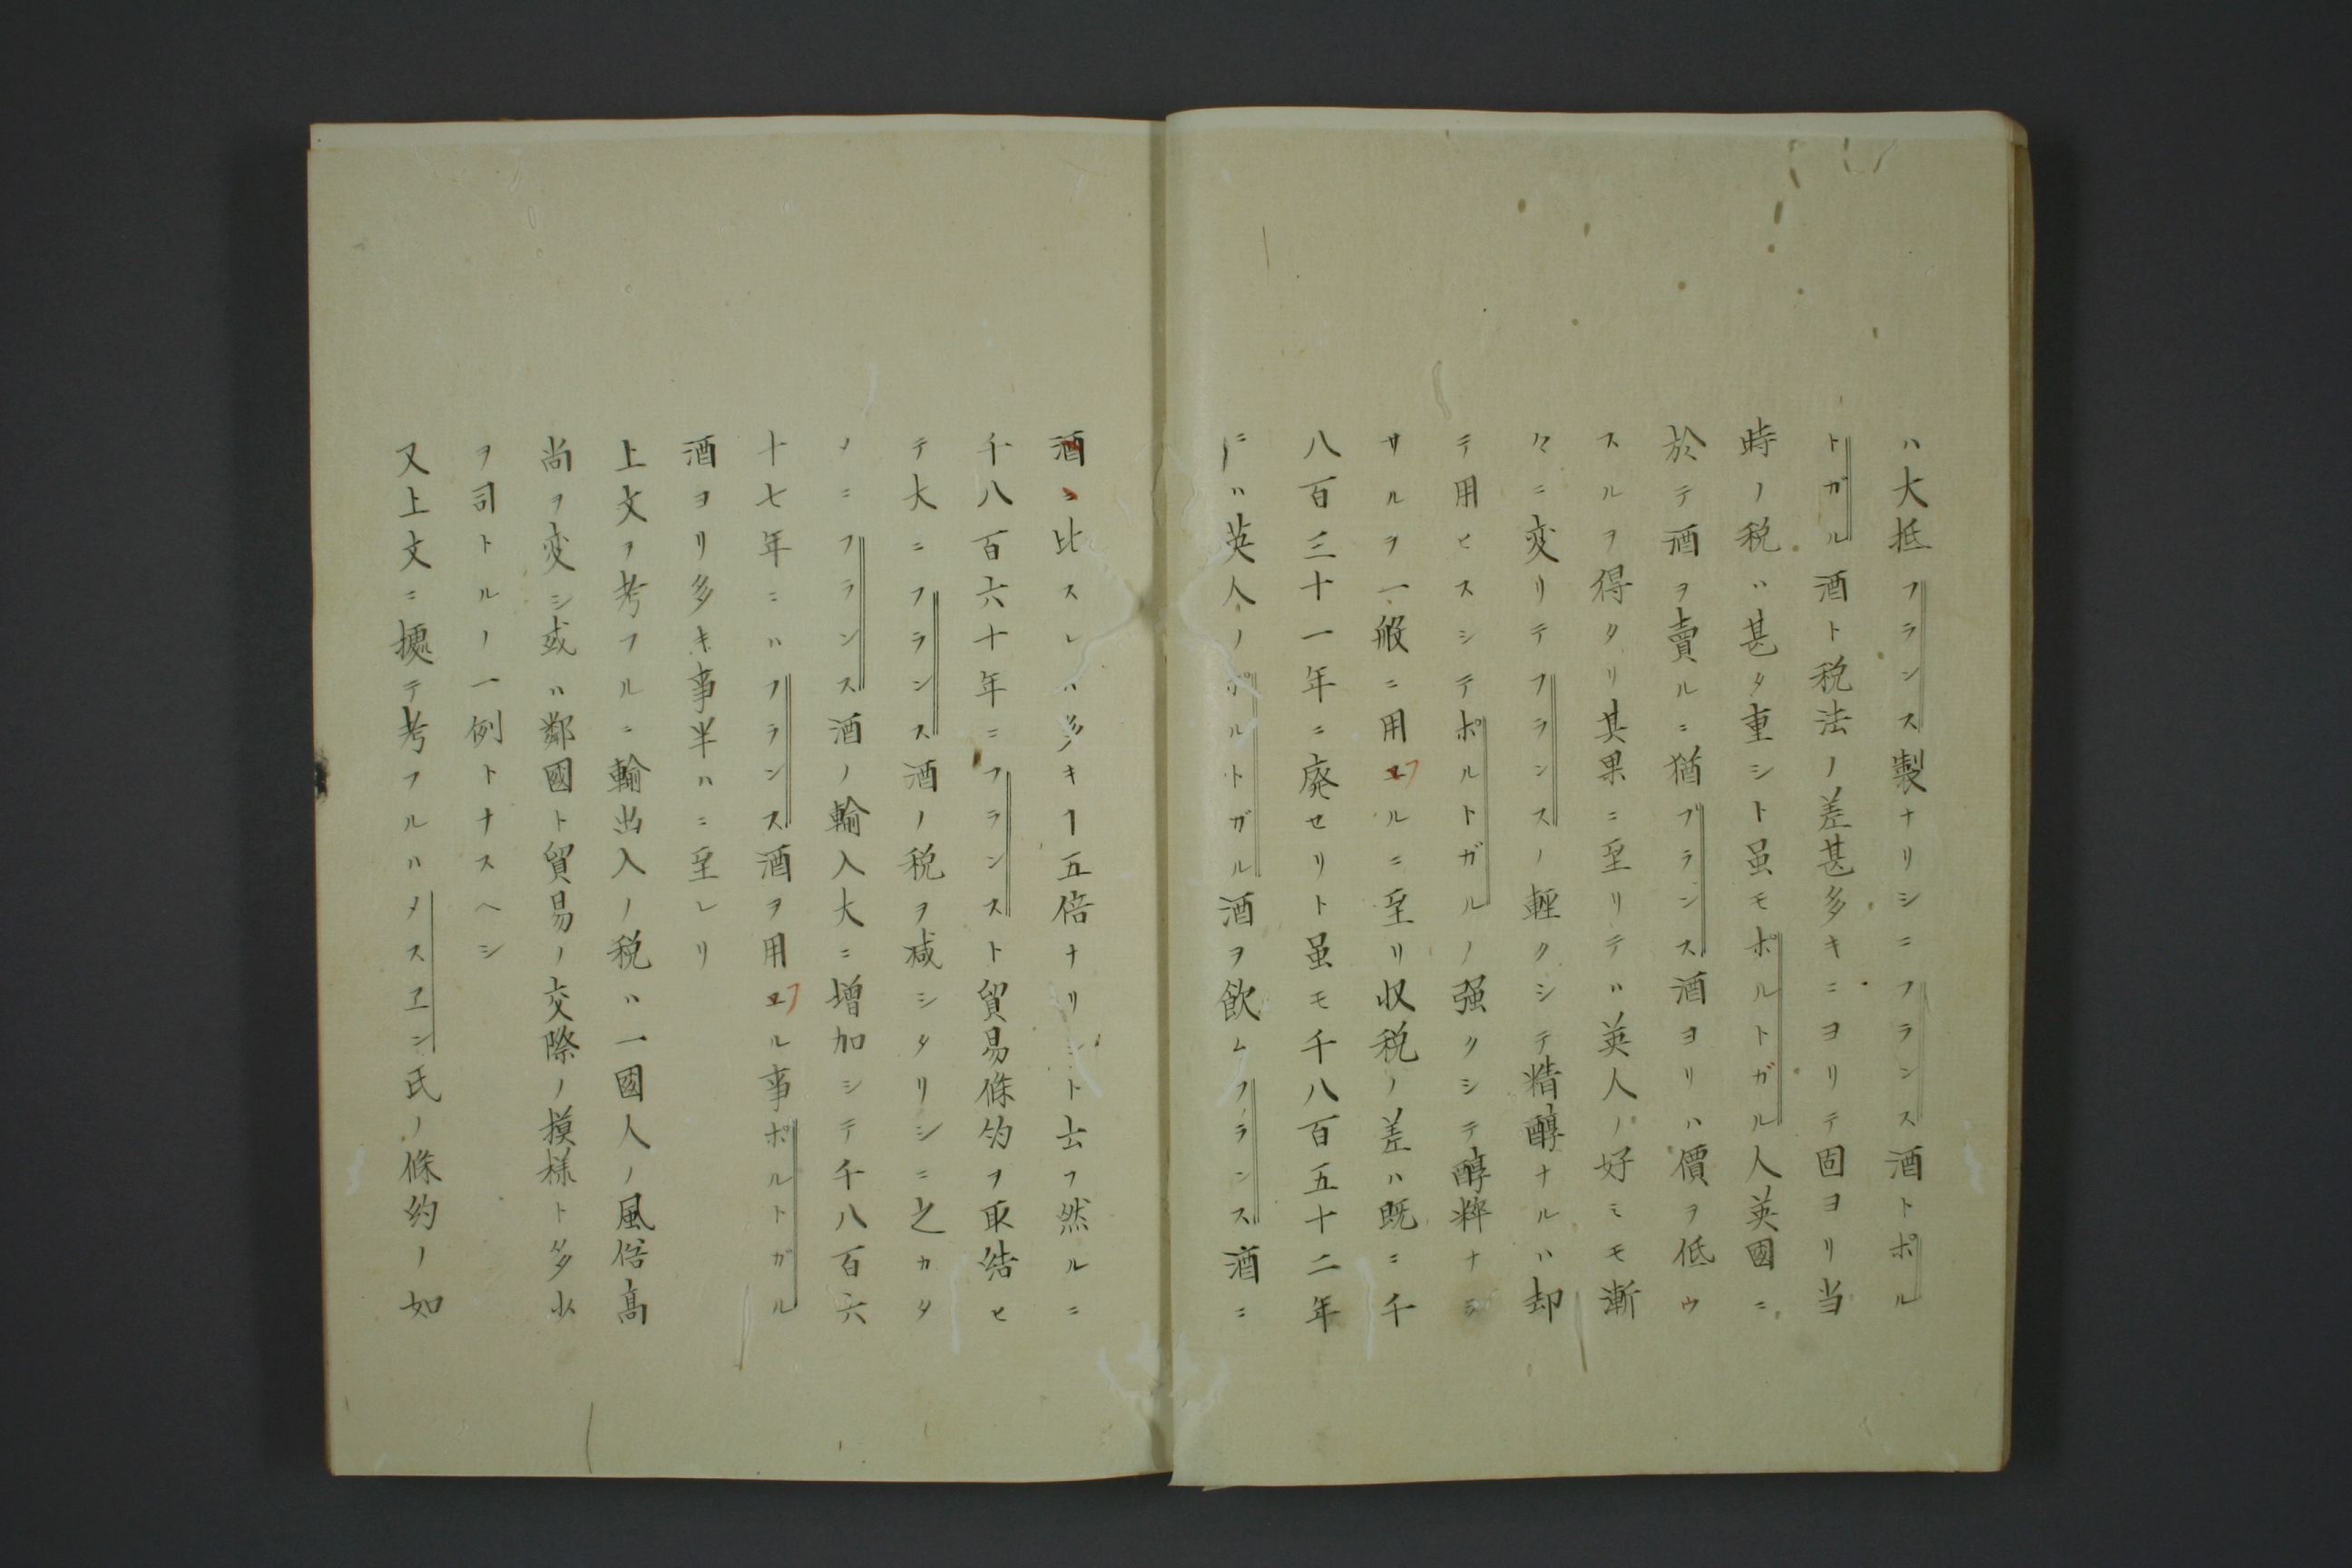 ハ大抵フランス製ナリシニフランス酒トポル
トガル酒ト税法ノ差甚多キニヨリテ固ヨリ当
時ノ税ハ甚タ重シト虽モポルトガル人英國ニ
於テ酒ヲ賣ルニ猶フランス酒ヨリハ價ヲ低ウ
スルヲ得タリ其果ニ至リテハ英人ノ好ミモ漸
々ニ変リテフランスノ輕クシテ精醇ナルハ却
テ用ヒスシテポルトガルノ强クシテ醇粹ナ
サルヲ一般ニ用フルニ至リ収税ノ差ハ既ニ千
八百三十一年ニ廃セリト虽モ千八百五十二年
ニハ英人ノポルトガル酒ヲ飲ムフランス酒ニ
酒ニ比スレハ多キヿ五倍ナリシト云フ然ルニ
千八百六十年ニフランスト貿易條約ヲ取結ヒ
テ大ニフランス酒ノ税ヲ减シタリシニ之カタ
メニフランス酒ノ輸入大ニ增加シテ千八百六
十七年ニハフランス酒ヲ用フル事ポルトガル
酒ヨリ多キ事半ハニ至レリ
上文ヲ考フルニ輸出入ノ税ハ一國人ノ風俗髙
尚ヲ変シ或ハ鄰國ト貿易ノ交際ノ摸様ト多少
ヲ司トルノ一例トナスヘシ
又上文ニ據テ考フルハメスエン氏ノ條約ノ如